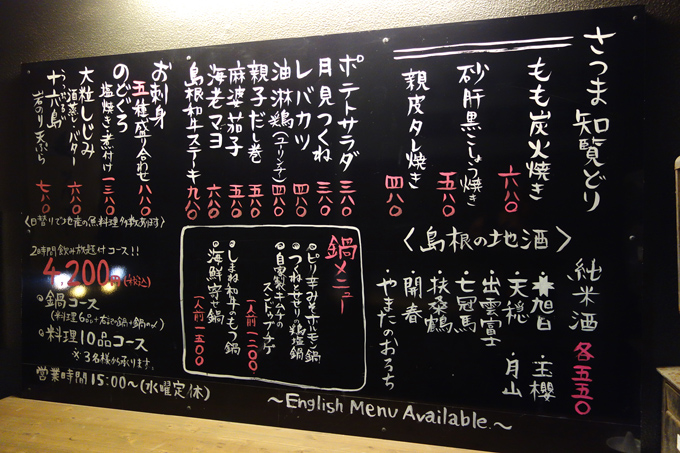 さつま知覧どり
もも炭火焼き 六八〇
砂肝黒こしょう焼き 五八〇
親皮タレ焼き 四八〇
〈島根の地酒〉
純米酒 各五五〇
旭日 ・玉櫻
・天穏 ・月山
・出雲富士
・七冠馬
・扶桑鶴
・開春
・やまたのおろち
ポテトサラダ 三八〇
月見つくね 三八〇
レバカツ 四八〇
油淋鶏(ユーリンチ) 四八〇
親子だし巻 五八〇
麻婆茄子 五八〇
海老マヨ 六八〇
島根和牛ステーキ 九八〇
鍋メニュー
・ピリ辛みそホルモン鍋
・つくねと芹の鶏塩鍋
・自家製キムチの
スンドゥブチゲ
一人前 一二〇〇
・しまね和牛のもつ鍋
・海鮮寄せ鍋
一人前 一五〇〇
お刺身
五種盛り合わせ 八八〇
のどぐろ
塩焼き・煮付け 一三八〇
大粒しじみ
酒蒸し・バター 六八〇
十六島
岩のり天ぷら 七八〇
〈日替りで地産の魚料理多数あります〉
2時間飲み放題付コース!!
4,200円(税込)
・鍋コース
・料理10品コース
※3名様から承ります。
営業時間15:00〜(水曜定休)
〜English Menu Available.〜